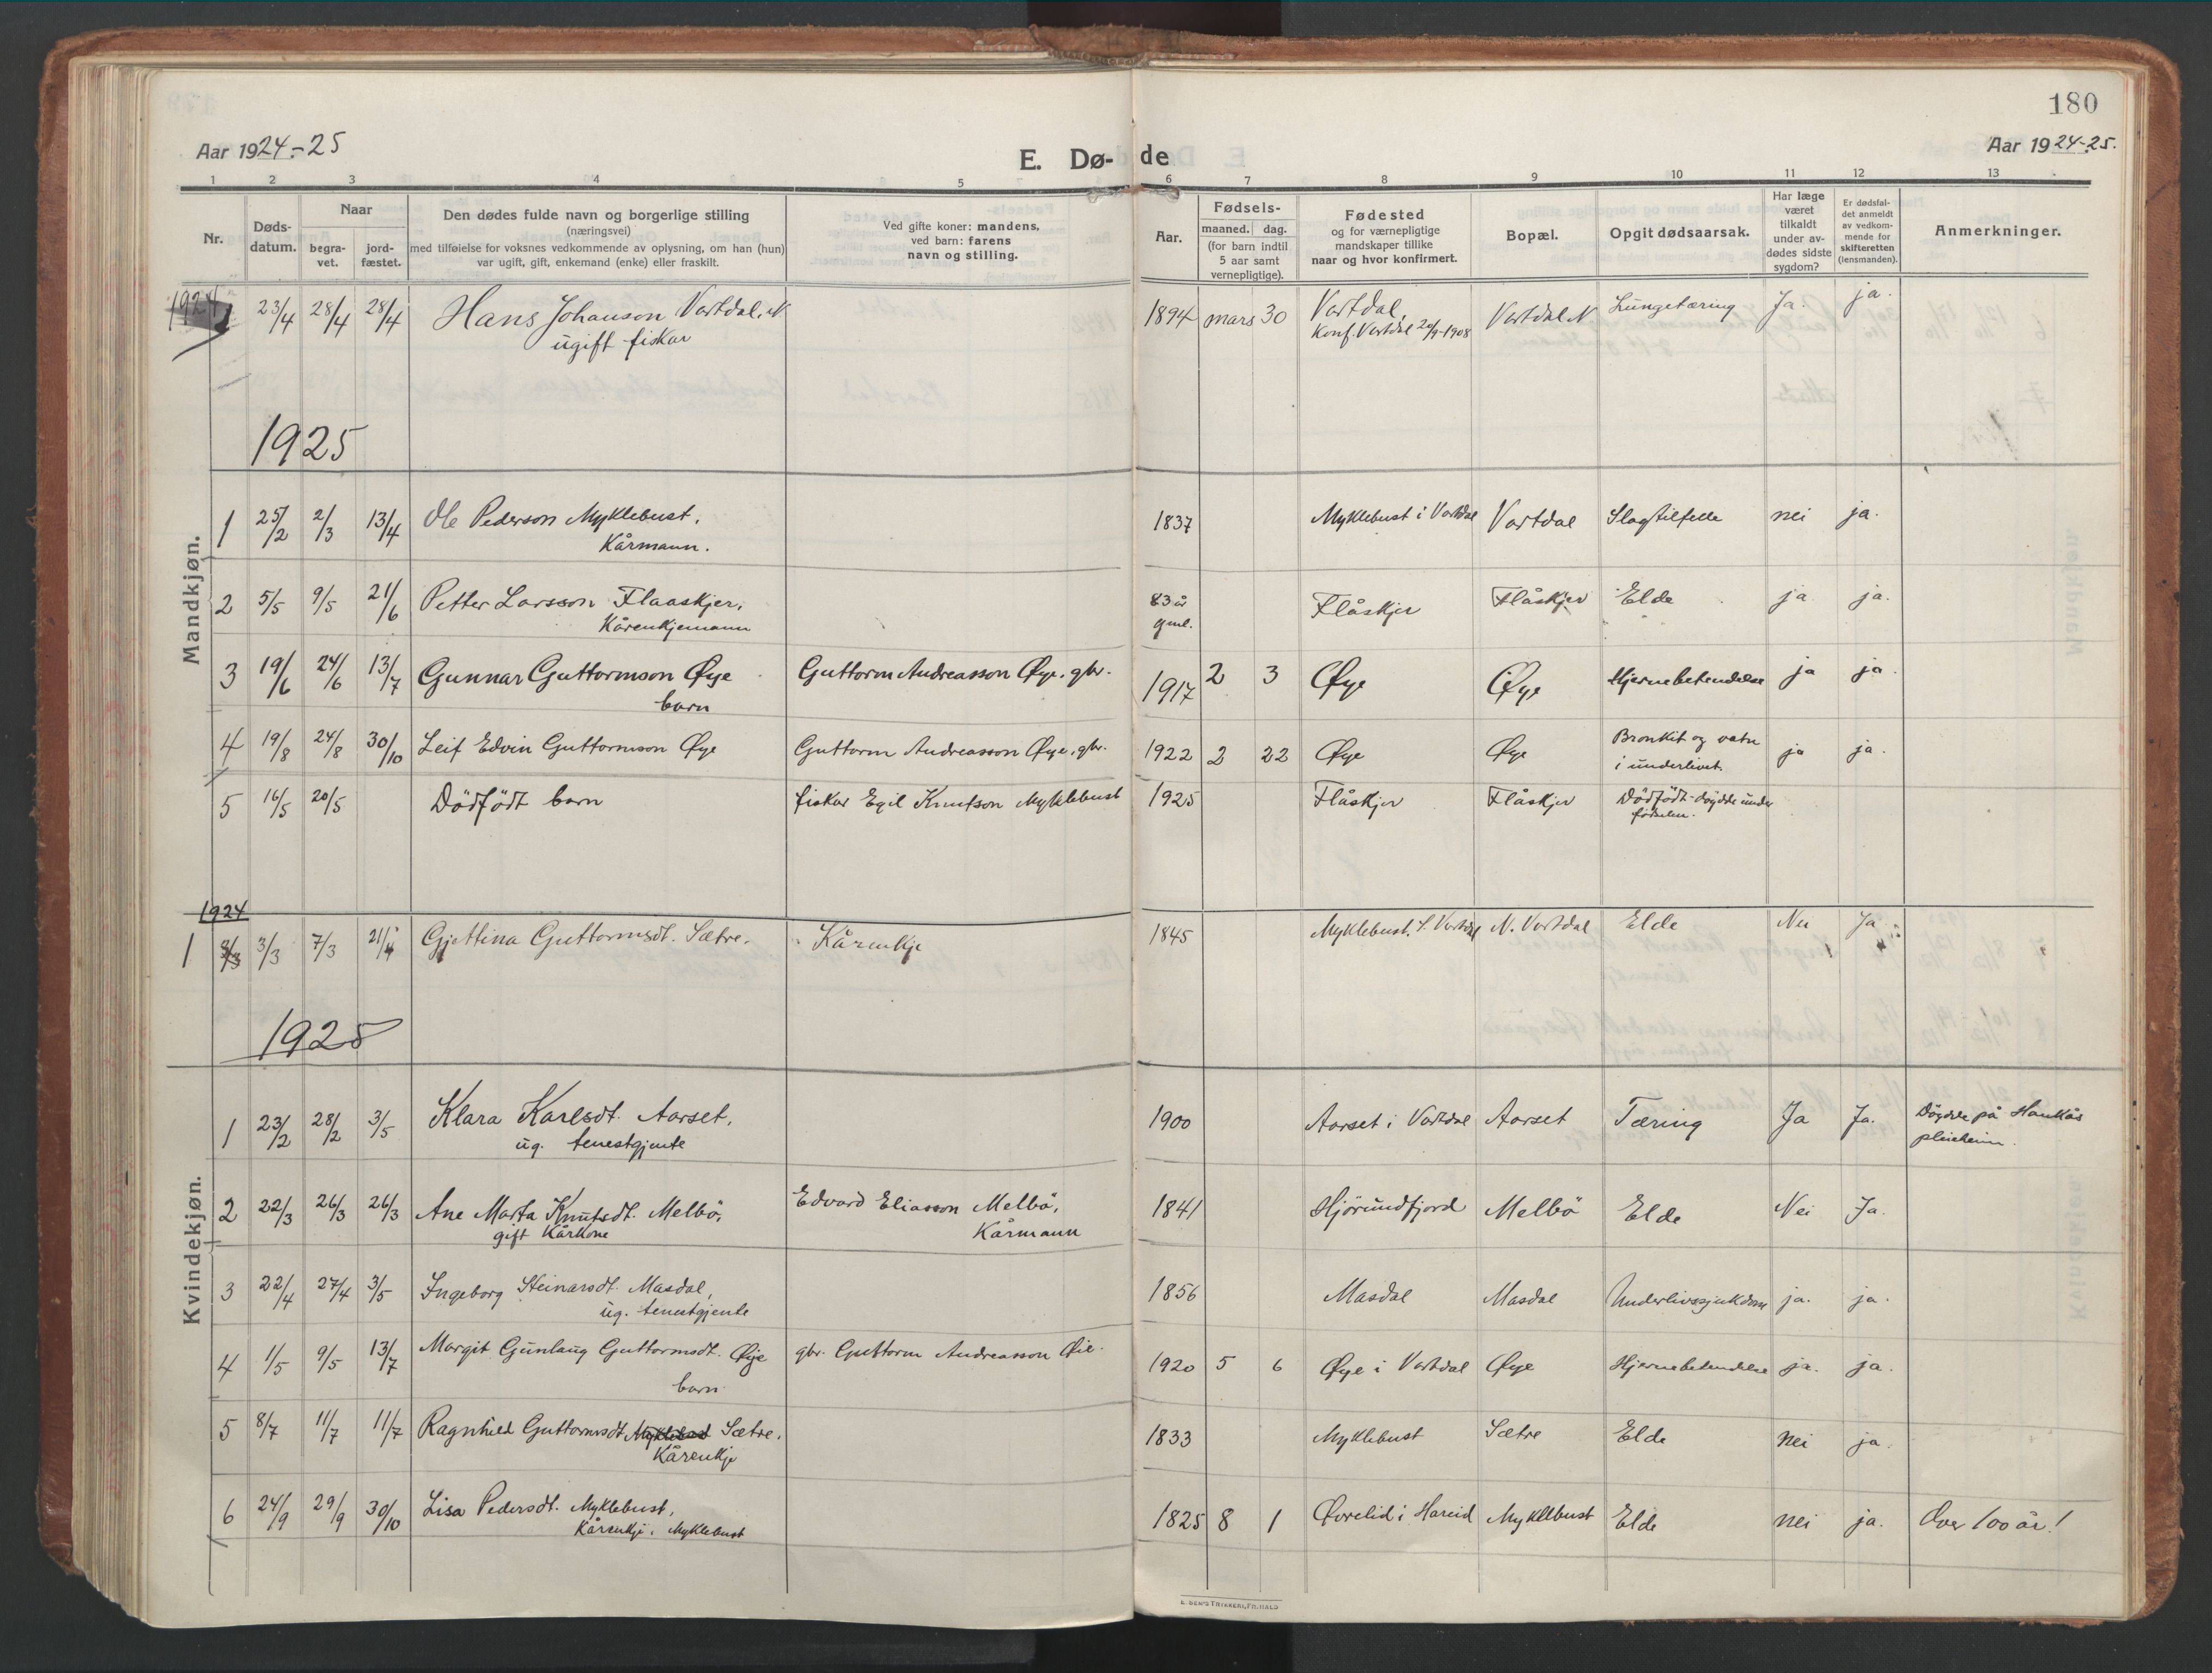 180
Aar 1924.-25
E. Dø-de
Aar 1924-25.
1 2 3 4 5 6 7 8 9 10 11 12 13
Nr.
Døds-
datum.
Naar
begra-
vet.
jord-
fæstet.
Den dødes fulde navn og borgerlige stilling
(næringsvei)
med tilføielse for voksnes vedkommende av oplysning, om han (hun)
var ugift, gift, enkemand (enke) eller fraskilt.
Ved gifte koner: mandens,
ved barn: farens
navn og stilling.
Aar.
Fødsels-
maaned. dag.
(for barn indtil
5 aar samt
vernepligtige).
Fødested
og for værnepligtige
mandskaper tillike
naar og hvor konfirmert.
Bopæl.
Opgit dødsaarsak.
Har læge
været
tilkaldt
under av-
dødes sidste
sygdom?
Er dødsfal-
det anmeldt
av vedkom-
mende for
skifteretten
(lensmanden).
Anmerkninger.
Mandkjøn.
1924 23/4 28/4 28/4 Hans Johanson Vartdal. N 1894 mars 30 Vartdal, Vartdal N Lungetæring Ja. ja.
ugift fiskar Konf. Vartdal 20/9-1908
1925
1 25/2 2/3 13/4 Ole Pederson Myklebust, 1837 Myklebust i Vartdal Vartdal Slagtilfelle nei ja.
Kårmann.
2 5/5 9/5 21/6 Petter Larsson Flaaskjer, 83 år Flåskjer Flåskjer Elde ja ja.
Kårenkjemann gml.
3 19/6 24/6 13/7 Gunnar Guttormson Øye Guttorm Andreasson Øye, gbr. 1917 2 3 Øye Øye Hjernebetendelse ja ja.
barn
4 19/8 24/8 30/10 Leif Edvin Guttormson Øye Guttorm Andreasson Øye, gbr. 1922 2 22 Øye Øye Bronkit og vatn ja ja.
i underlivet.
5 16/5 20/5 Dödfödt barn fiskar Egil Knutson Myklebust 1925 Flåskjer Flåskjer Dödfödt - döydde under
födselen.
Kvindekjøn.
1924
1 3/3 3/3 7/3 21/4 Gjettina Guttormsdt. Sætre. Kårenkje 1845 Myklebust, S. Vartdal N. Vartdal Elde Nei Ja
1925
1 23/2 28/2 3/5 Klara Karlsdt. Aarset, 1900 Aarset i Vartdal Aarset Tæring Ja Ja. Döydde på Haukås
ug. tenestgjente pleieheim.
2 22/3 26/3 26/3 Ane Marta Knutsdt. Melbö, Edvard Eliasson Melbö, 1841 Hjörundfjord Melbö Elde Nei Ja.
gift Kårkone Kårmann
3 22/4 27/4 3/5 Ingeborg Steinarsdt. Masdal, 1856 Masdal Masdal Underlivssjukdom ja. ja.
ug. tenestgjente
4 1/5 9/5 13/7 Margit Gunlaug Guttormsdt. Øye gbr. Guttorm Andreasson Øie. 1920 5 6 Øye i Vartdal Øye Hjernebetendelse ja. ja.
barn
5 8/7 11/7 11/7 Ragnhild Guttormsdt Myklebust Sætre. 1833 Myklebust Sætre Elde nei ja.
Kårenkje
6 24/9 29/9 30/10 Lisa Pedersdt. Myklebust, 1825 8 1 Överlid i Hareid Myklebust Elde nei ja. Över 100 år!
Kårenkje. Myklebust